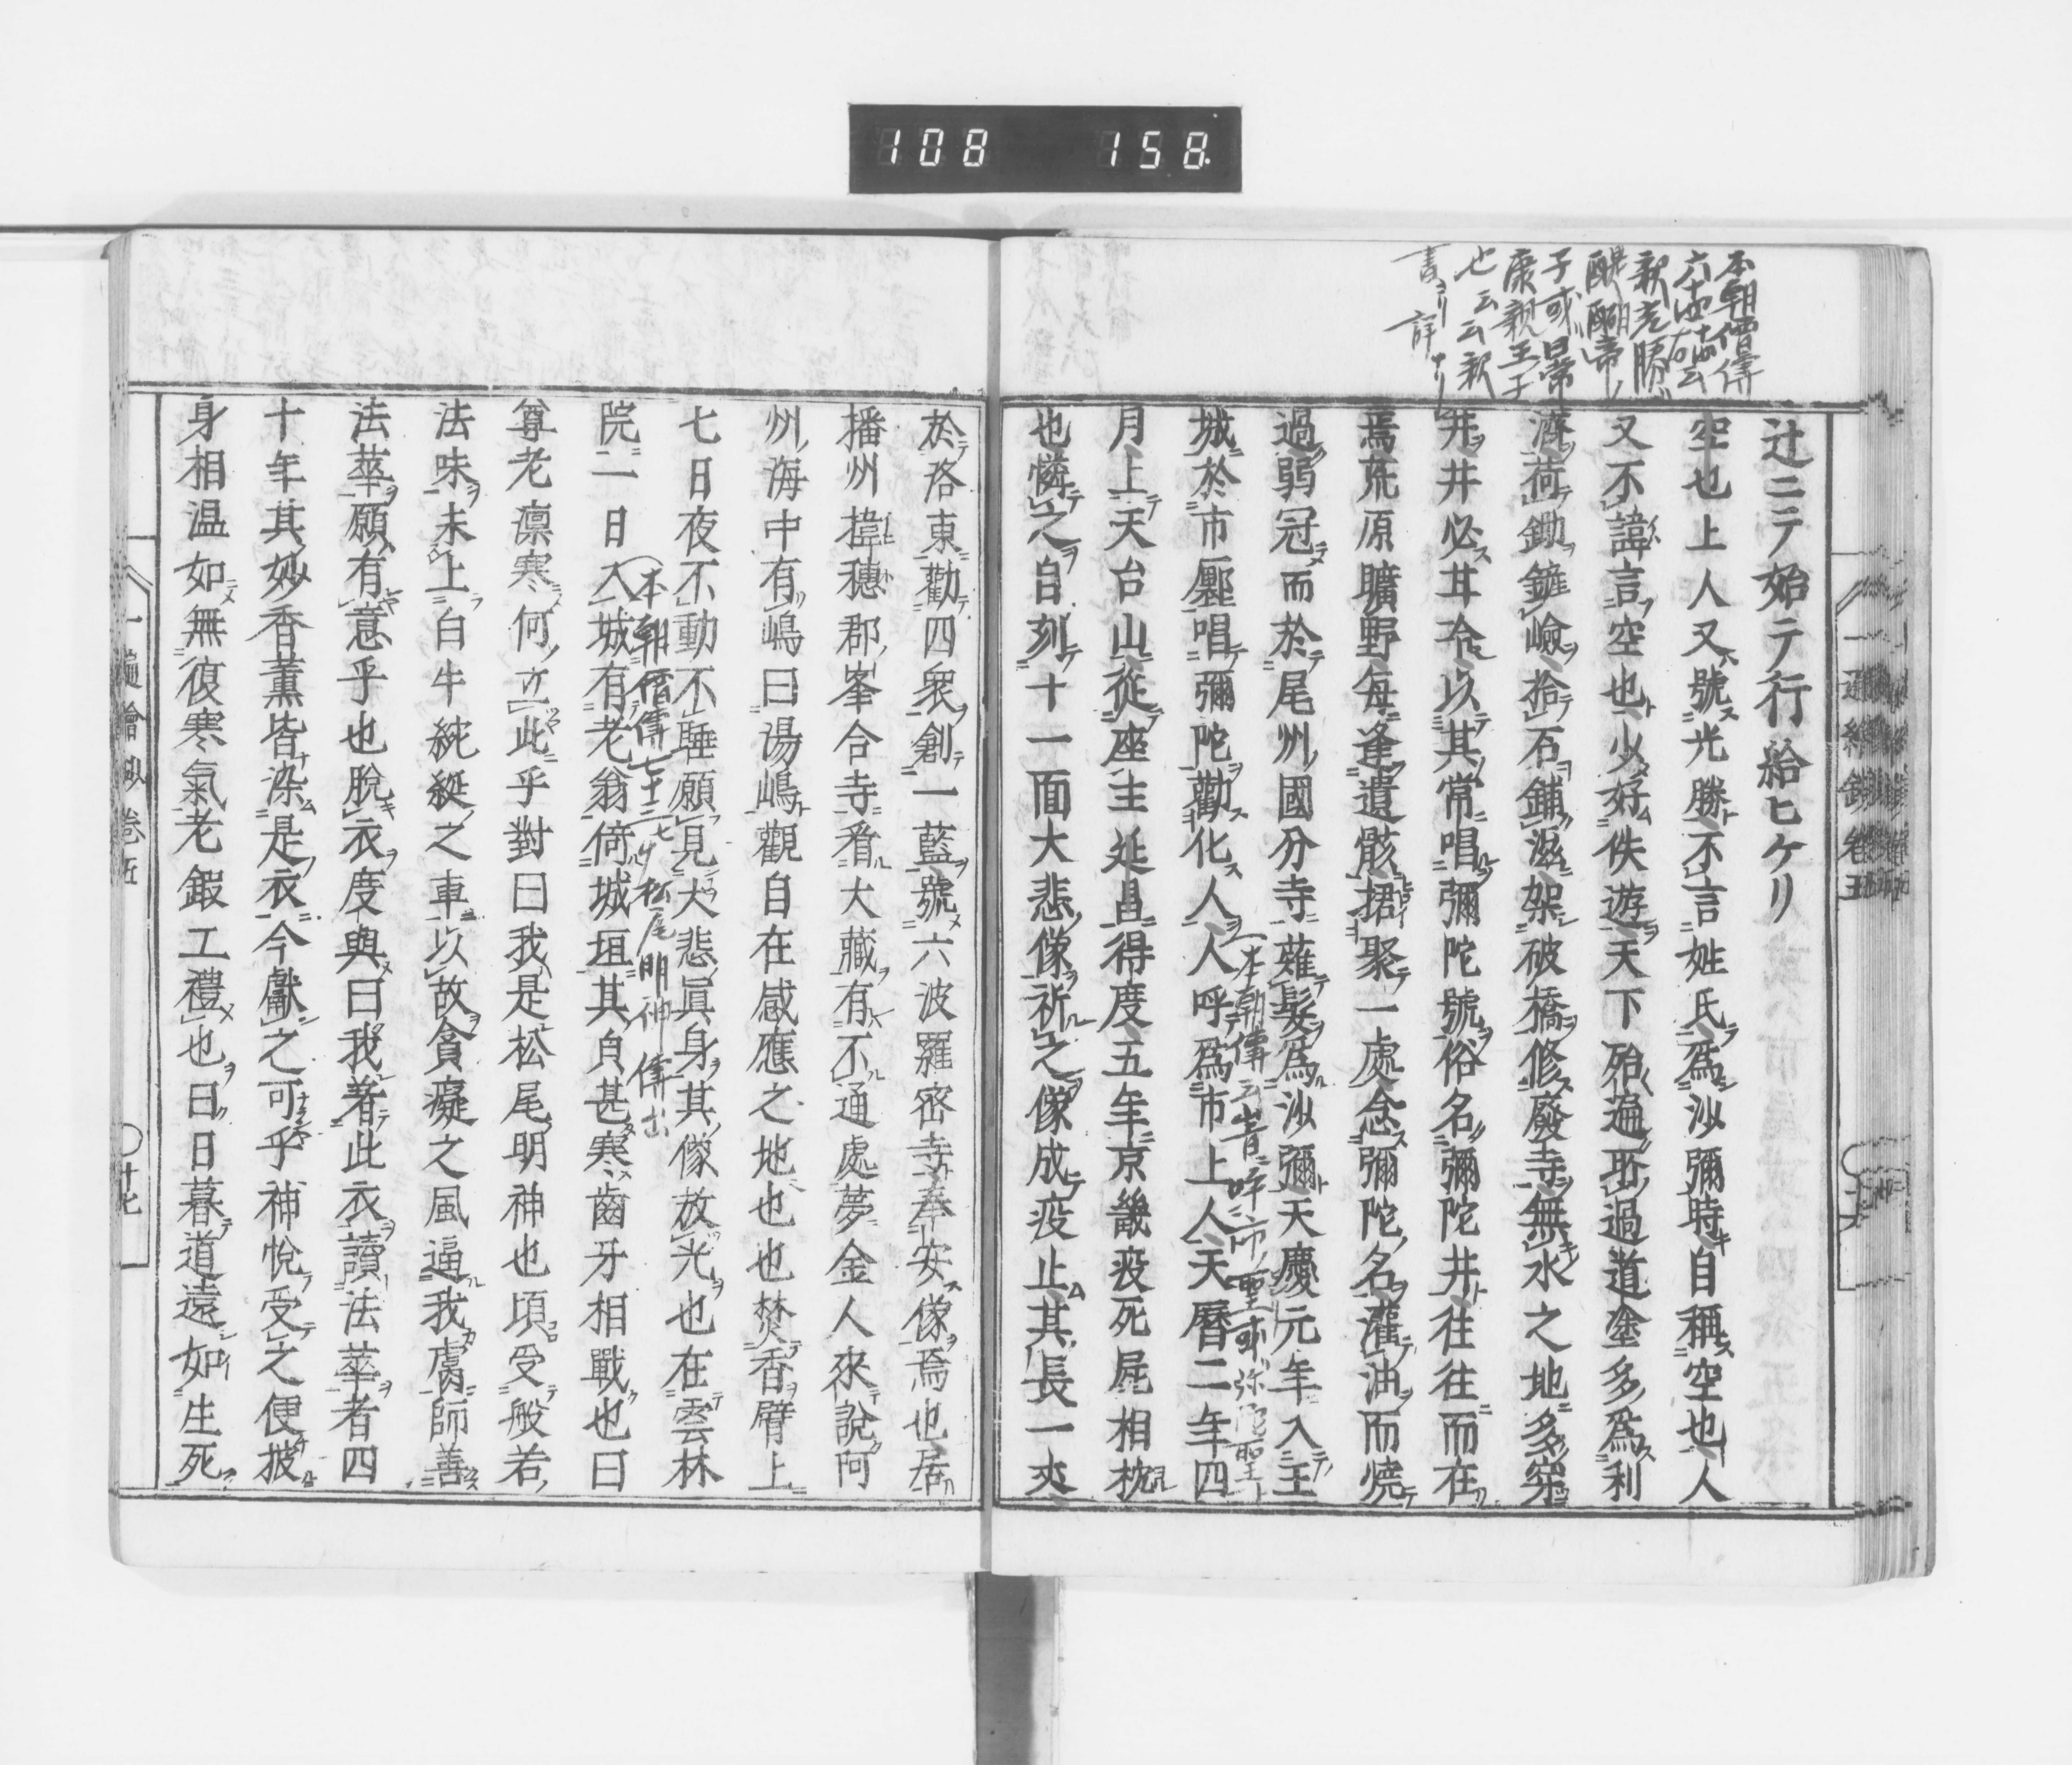 108 158
本朝僧傳
醍醐帝ノ
子或曰常
康親王子
也云云
辻ニテ始テ行給ヒケリ
空也上人又號光勝不言姓氏爲沙彌時自稱空也人
又不諱言空也少好佚遊天下殆遍歴過道塗多爲利
濟荷鋤鏟嶮拾石鋪濕架破橋修廢寺無水之地多穿
井井必甘冷以其常唱彌陀號俗名彌陀井往往而在
焉荒原曠野毎逢遺骸捃聚一處念彌陀名灌油而燒
過弱冠而於尾州國分寺薙髮爲沙彌天慶元年入王
城於市鄽唱彌陀勸化人人呼爲市上人天曆二年四
本朝僧傳云 市聖或弥陀聖ト
月上天台山從座主延昌得度五年京畿疫死屍相枕
也憐之自刻十一面大悲像祈之像成疫止其長一丈
於洛東勸四衆創一藍號六波羅密寺奉安像焉也居
播州揖穗郡峯合寺看大藏有不通處夢金人來說阿
州海中有嶋曰湯嶋觀自在感應之地也也焚香臂上
七日夜不動不睡願見大悲眞身其像放光也在雲林
本朝僧傳七十二 松尾明神傳出
院二日入城有老翁倚城垣其皃甚寒齒牙相戰也曰
尊老凛寒何立此乎對曰我是松尾明神也頃受般若
法味未上白牛純綖之車以故貪癡之風逼我膚師善
法華願有意乎也脫衣度與曰我着此衣讀法華者四
十年其妙香薰皆染是衣今獻之可乎神悅受之便披
身相温如無復寒氣老鍜工禮也曰日暮道遠如生死
一遍繪詞 卷五 十七